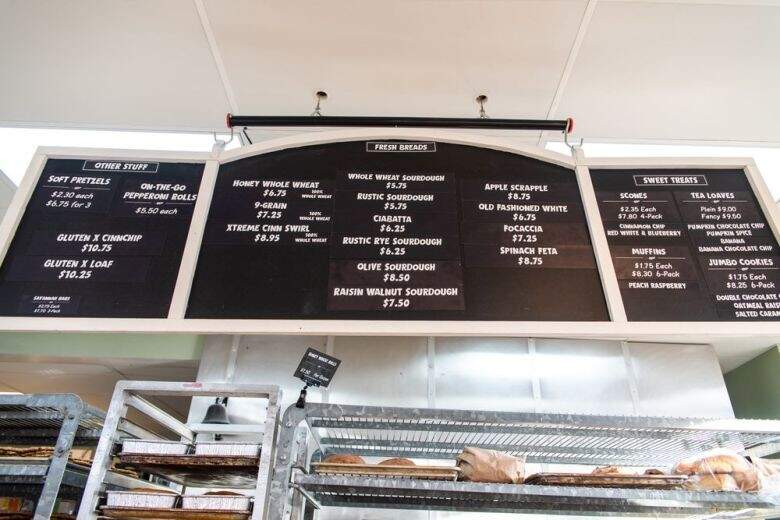 OTHER STUFF
SOFT PRETZELS
$2.30 each
or
$6.75 for 3
ON-THE-GO
PEPPERONI ROLLS
$5.50 each
GLUTEN X CINNCHIP
$10.75
GLUTEN X LOAF
$10.25
SAVANNAH BARS
FRESH BREADS
HONEY WHOLE WHEAT
$6.75 100% WHOLE WHEAT
9-GRAIN
$7.25 100% WHOLE WHEAT
XTREME CINN SWIRL
$8.95 100% WHOLE WHEAT
WHOLE WHEAT SOURDOUGH
$5.75
RUSTIC SOURDOUGH
$5.75
CIABATTA
$6.25
RUSTIC RYE SOURDOUGH
$6.25
OLIVE SOURDOUGH
$8.50
RAISIN WALNUT SOURDOUGH
$7.50
APPLE SCRAPPLE
$8.75
OLD FASHIONED WHITE
$6.75
FOCACCIA
$7.25
SPINACH FETA
$8.75
SWEET TREATS
SCONES
or
$2.35 Each
$7.80 4-Pack
CINNAMON CHIP
RED WHITE & BLUEBERRY
MUFFINS
or
$1.75 Each
$8.30 6-Pack
PEACH RASPBERRY
TEA LOAVES
or
Plain $9.00
Fancy $9.50
PUMPKIN CHOCOLATE CHIP
PUMPKIN SPICE
BANANA
BANANA CHOCOLATE CHIP
JUMBO COOKIES
or
$1.75 Each
$8.25 6-Pack
DOUBLE CHOCOLATE
OATMEAL RAIS
SALTED CARAM